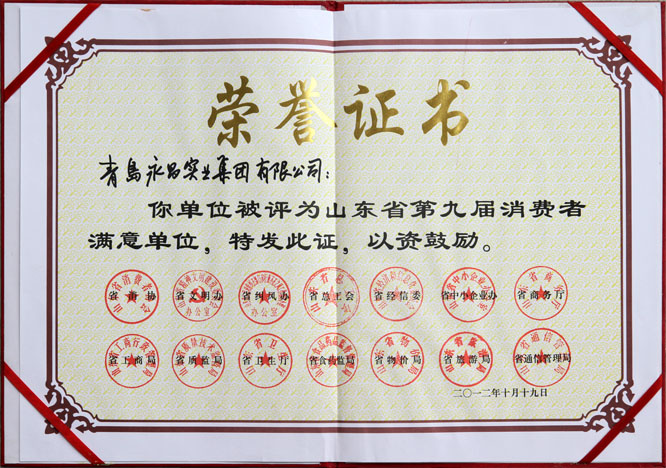 荣誉证书
青島永昌实业集团有限公司：
你单位被评为山东省第九届消费者
满意单位，特发此证，以资鼓励。
省消协 省文明办 省纠风办 省总工会 省经信委 省中小企业办 省商务厅
省工商局 省质监局 省卫生厅 省食药监局 省物价局 省旅游局 省通信管理局
二〇一二年十月十九日